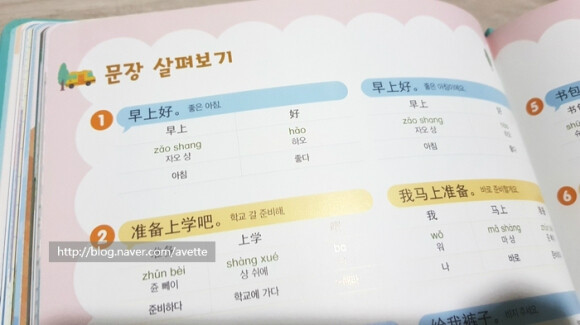 문장 살펴보기
1 早上好。 좋은 아침.
早上 好
zǎo shang hǎo
자오 상 하오
아침 좋다
早上好。 좋은 아침이에요.
早上
zǎo shang
자오 상
아침 좋다
2 准备上学吧。 학교 갈 준비해.
上学
zhǔn bèi shàng xué
쥰 뻬이 상 쉬에
준비하다 학교에 가다
我马上准备。 바로 준비할게요.
我 马上
wǒ mǎ shàng
워 마 상
나 바로
给我裤子。
5 书包
6
http://blog.naver.com/avette